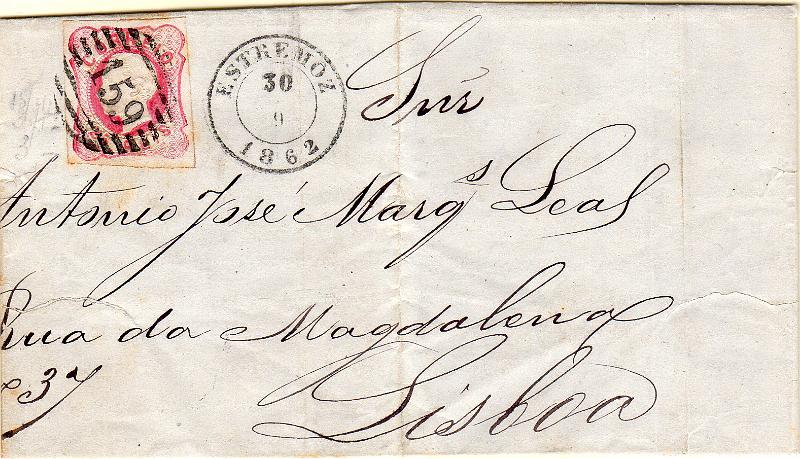 159
ESTREMOZ
30
9
1862
Snr
Antonio José Marqs Leal
Rua da Magdalena
37
Lisboa